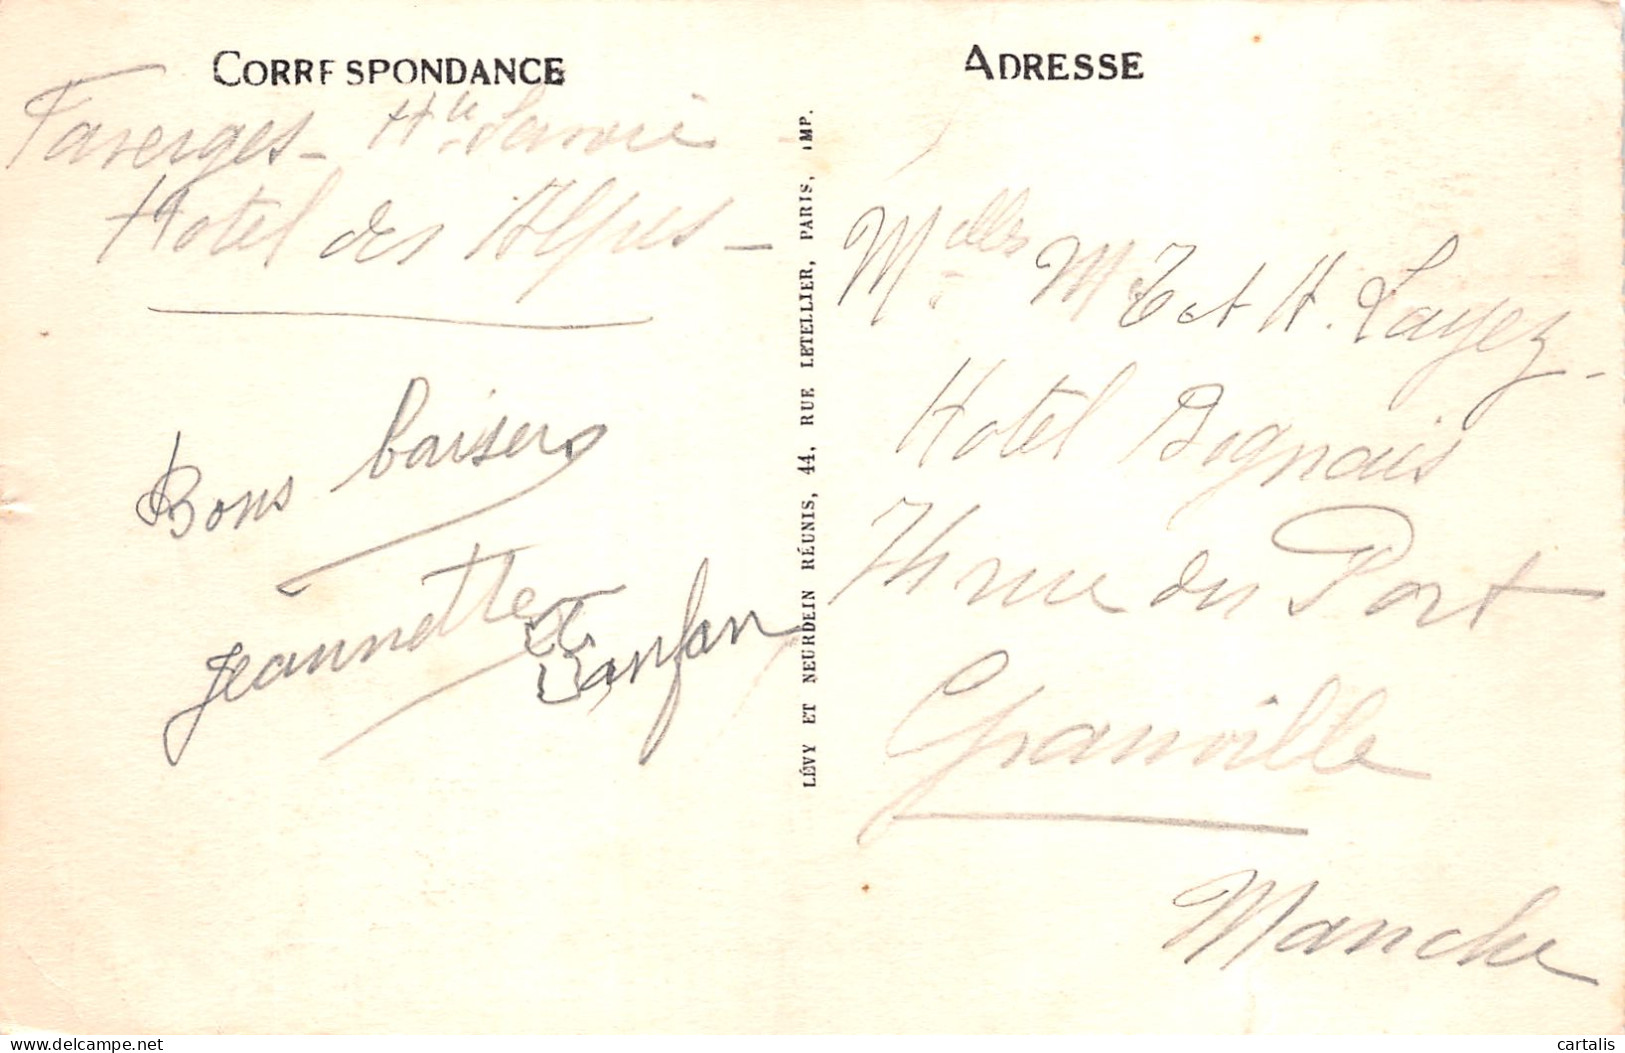 CORRESPONDANCE
Faverges - Hte Savoie -
Hotel des Alpes -
Bons baisers
Jeannette
LÉVY ET NEURDEIN RÉUNIS, 44, RUE LETELLIER, PARIS, IMP.
ADRESSE
Melles M T et H. Layez -
Hotel Bognais
74 rue du Port
Granville
Manche
cartalis
delcampe.net